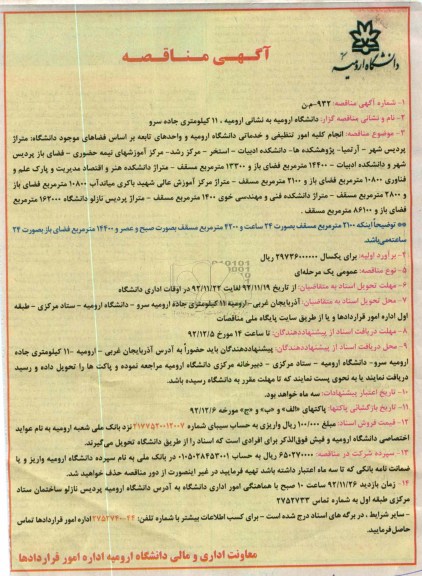 آگهی مناقصه
دانشگاه ارومیه
۱- شماره آگهی مناقصه: ۹۳۲-م.ن
۲- نام و نشانی مناقصه گزار: دانشگاه ارومیه به نشانی ارومیه ، ۱۱ کیلومتری جاده سرو
۳- موضوع مناقصه: انجام کلیه امور تنظیفی و خدماتی دانشگاه ارومیه و واحدهای تابعه بر اساس فضاهای موجود دانشگاه: متراژ
پردیس شهر – آرتمیا- پژوهشکده ها- دانشکده ادبیات – استخر – مرکز رشد- مرکز آموزشهای نیمه حضوری – فضای باز پردیس
شهر و دانشکده ادبیات – ۱۴۴۰۰ مترمربع فضای باز و ۱۳۳۰۰ مترمربع مسقف – متراژ دانشکده هنر و اقتصاد مدیریت و پارک علم و
فناوری ۱۰۸۰۰ مترمربع فضای باز و ۲۱۰۰ مترمربع مسقف – متراژ مرکز آموزش عالی شهید باکری میاندآب ۱۰۸۰۰ مترمربع فضای باز
و ۲۸۰۰ مترمربع مسقف – متراژ دانشکده فنی و مهندسی خوی ۱۴۰۰ مترمربع مسقف – متراژ پردیس نازلو دانشگاه ۱۶۲۰۰۰ مترمربع
فضای باز و ۸۶۱۰۰ مترمربع مسقف .
** توضیحاً اینکه ۲۱۰۰ مترمربع مسقف بصورت ۲۴ ساعت و ۴۲۰۰ مترمربع مسقف بصورت صبح و عصر و ۱۴۴۰۰ مترمربع فضای باز بصورت ۲۴
ساعته می‌باشد.
۴- برآورد اولیه: برای یکسال ۲۹۷۳۶۰۰۰۰۰۰ ریال
۵- نوع مناقصه: عمومی یک مرحله‌ای
۶- مهلت تحویل اسناد به متقاضیان: از تاریخ ۹۲/۱۱/۱۹ لغایت ۹۲/۱۱/۲۲ در اوقات اداری دانشگاه
۷- محل تحویل اسناد به متقاضیان: آذربایجان غربی –ارومیه ۱۱ کیلومتری جاده ارومیه سرو – دانشگاه ارومیه – ستاد مرکزی – طبقه
اول اداره امور قراردادها و یا از طریق سایت پایگاه ملی مناقصات
۸- مهلت دریافت اسناد از پیشنهاددهندگان: تا ساعت ۱۴ مورخ ۹۲/۱۲/۵
۹- محل دریافت اسناد از پیشنهاددهندگان: پیشنهاددهندگان باید حضوراً به آدرس آذربایجان غربی – ارومیه –۱۱ کیلومتری جاده
ارومیه سرو- دانشگاه ارومیه – ستاد مرکزی – دبیرخانه مرکزی دانشگاه ارومیه مراجعه نموده و پاکت ها را تحویل داده و رسید
دریافت نمایند یا به نحوی پست نمایند که تا مهلت مقرر به دانشگاه رسیده باشد.
۱۰- تاریخ اعتبار پیشنهادات: سه ماه خواهد بود.
۱۱- تاریخ بازگشایی پاکتها: پاکتهای «الف» و «ب» و «ج» مورخه ۹۲/۱۲/۶
۱۲- قیمت فروش اسناد: مبلغ ۱۰۰/۰۰۰ ریال واریزی به حساب سیبای شماره ۲۱۷۷۵۲۰۱۲۰۰۷ نزد بانک ملی شعبه ارومیه به نام عواید
اختصاصی دانشگاه ارومیه و فیش فوق‌الذکر برای افرادی است که اسناد را از طریق دانشگاه تحویل می‌گیرند.
۱۳- سپرده شرکت در مناقصه: ۶۵۰۲۷۰۰۰۰ ریال به حساب ۰۱۰۵۰۲۸۴۵۳۰۰۱ در بانک ملی به نام سپرده دانشگاه ارومیه واریز و یا
ضمانت نامه بانکی که تا سه ماه اعتبار داشته باشد تهیه فرمایید در غیر اینصورت از دور مناقصه حذف خواهید شد.
۱۴- زمان بازدید ۹۲/۱۱/۲۶ ساعت ۱۰ صبح با هماهنگی امور اداری دانشگاه به آدرس دانشگاه ارومیه پردیس نازلو ساختمان ستاد
مرکزی طبقه اول به شماره تماس ۲۷۵۲۷۳۳
– سایر شرایط ، در برگه های اسناد درج شده است – برای کسب اطلاعات بیشتر با شماره تلفن: ۲۴-۲۷۵۲۷۴۰ اداره امور قراردادها تماس
حاصل فرمایید.
معاونت اداری و مالی دانشگاه ارومیه اداره امور قراردادها